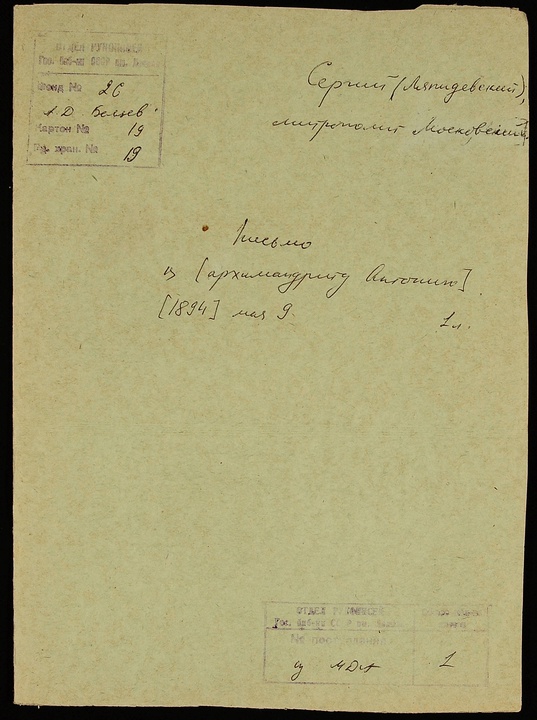 ОТДЕЛ РУКОПИСЕЙ
Гос. биб-ка СССР им. Ленина
Фонд № 26
А Д Беляев
Картон № 19
Ед. хран. № 19
Сергий (Ляпидевский),
митрополит Московский.
Письмо
к [архимандриту Антонию]
[1894] мая 9.
1 л.
ОТДЕЛ РУКОПИСЕЙ
Гос. биб-ка СССР им.
№ поступления
из МДА
1